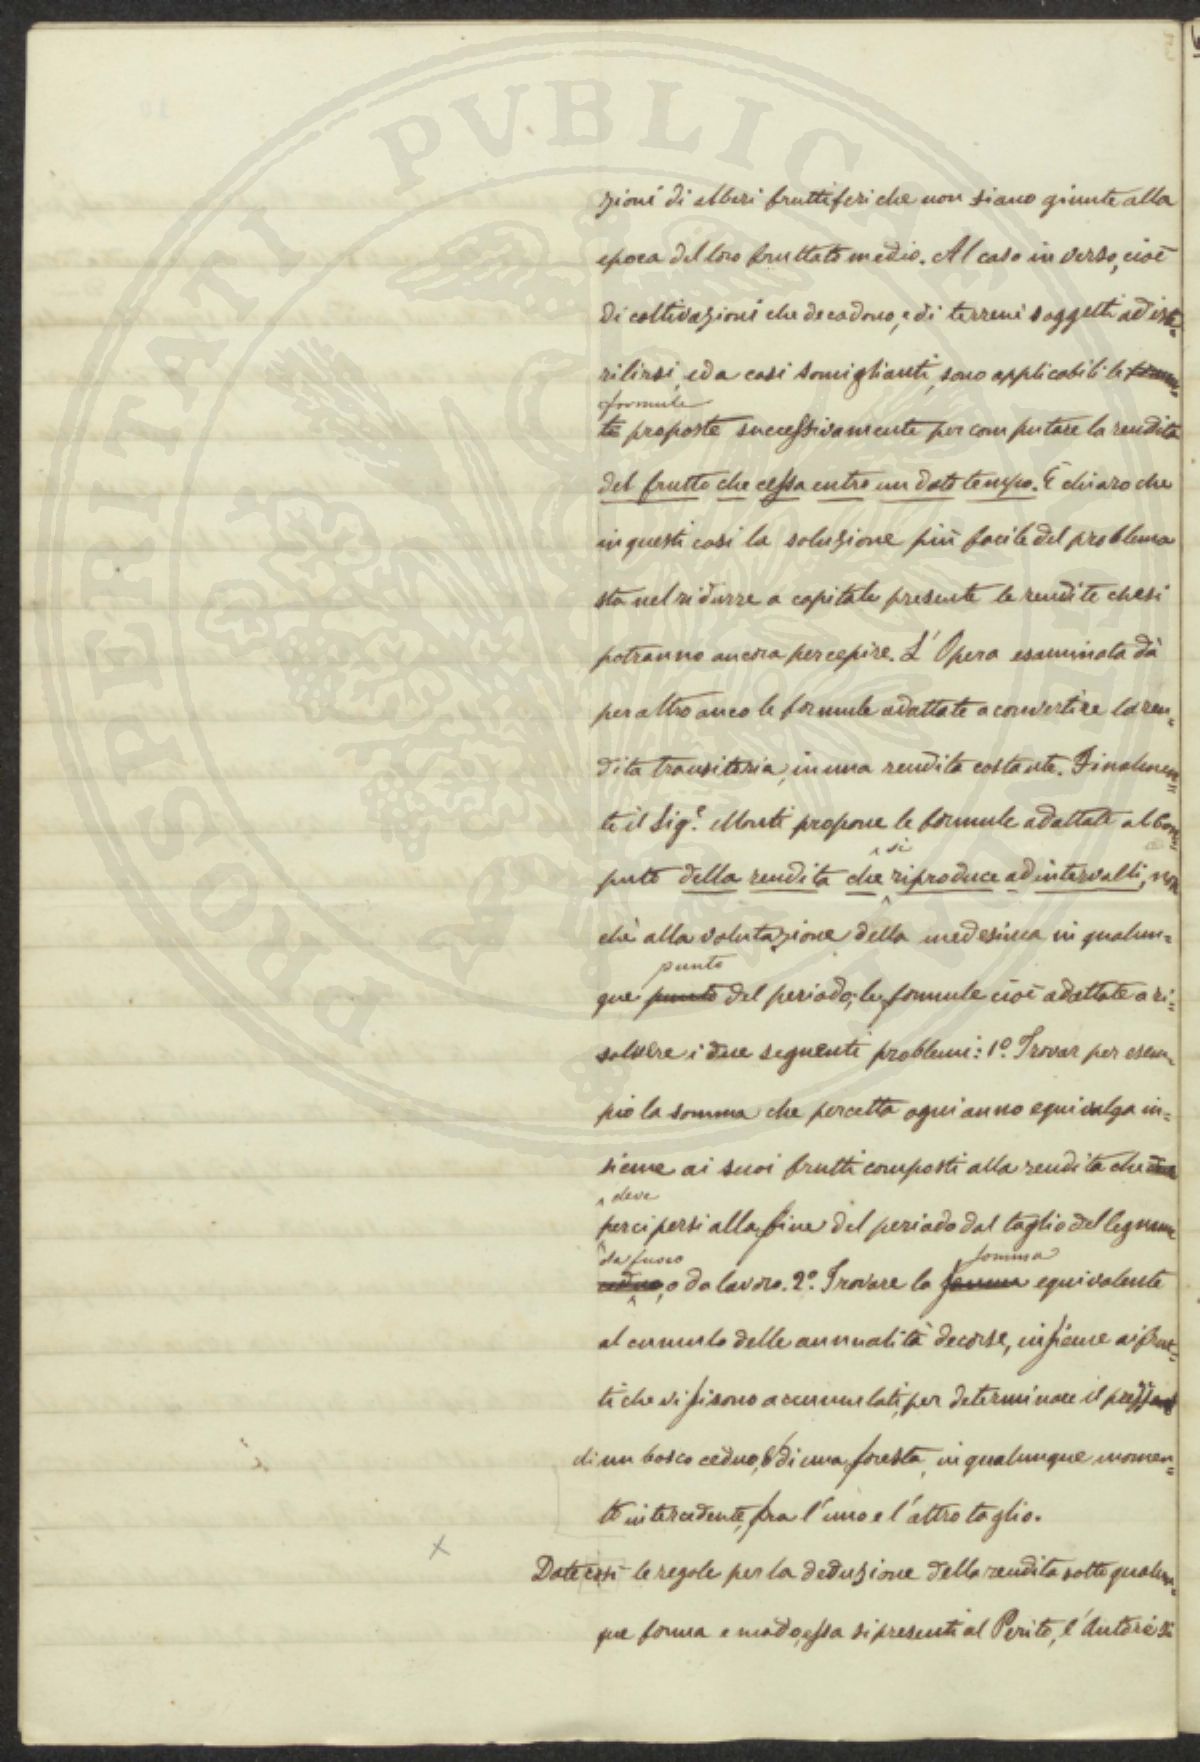 PROSPERITATI PUBLICAE AUGENDAE
zioni di alberi fruttiferi che non siano giunte alla
epoca del loro fruttato medio. Al caso inverso, cioè
di coltivazioni che decadono, e di terreni soggetti ad iste-
rilirsi, ed a casi somiglianti, sono applicabili le formu-
formule
le proposte successivamente per computare la rendita
del frutto che cessa entro un dato tempo. È chiaro che
in questi casi la soluzione più facile del problema
sta nel ridurre a capitale presente le rendite che si
potranno ancora percepire. L'Opera esaminata dà
per altro anco le formule adattate a convertire la ren=
dita transitoria, in una rendita costante. Finalmen=
te il Sig.e Monti propone le formule adattate al com=
si
puto della rendita che riproduce ad intervalli, non
chè alla valutazione della medesima in qualun=
punto
que punto del periodo; le formule cioè adattate a ri=
solvere i due seguenti problemi: 1.o Trovar per esem=
pio la somma che percetta ogni anno equivalga in=
sieme ai suoi frutti composti alla rendita che deve
deve
percipersi alla fine del periodo dal taglio del legname
da fuoco somma
ceduo, o da lavoro. 2.o Trovare la somma equivalente
al cumulo delle annualità decorse, insieme ai frut=
ti che vi si sono accumulati, per determinare il prezzo
di un bosco ceduo, o di una foresta, in qualunque momen=
to intercedente, fra l'uno e l'altro taglio.
Date essi le regole per la deduzione della rendita sotto qualun=
que forma e modo, essa si presenti al Perito, l'Autore si